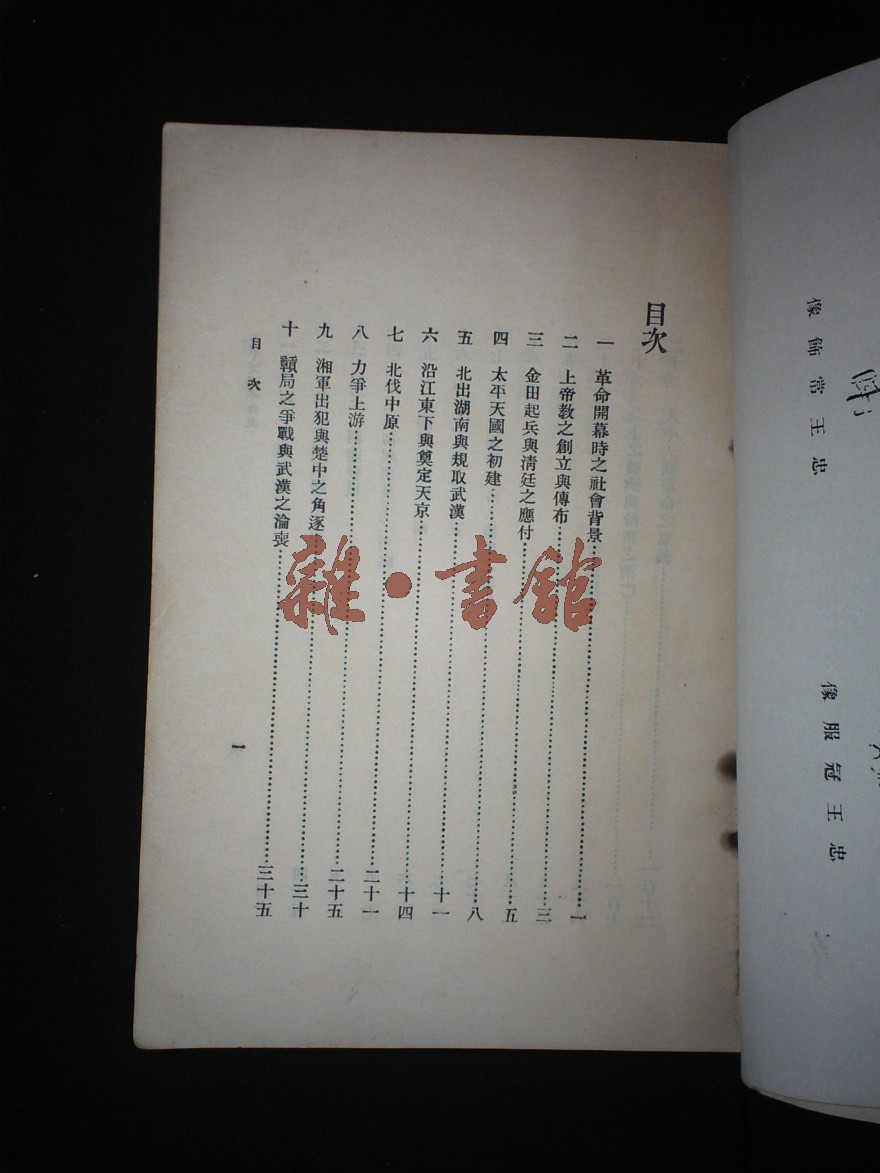 目次
一 革命開幕時之社會背景……一
二 上帝教之創立與傳布……三
三 金田起兵與清廷之應付……五
四 太平天國之初建……八
五 北出湖南與規取武漢……十一
六 沿江東下與奠定天京……十四
七 北伐中原……二十一
八 力爭上游……二十五
九 湘軍出犯與楚中之角逐……三十
十 贛局之爭戰與武漢之淪喪……三十五
目次
一
雜·書館
忠王常飾像
忠王冠服像